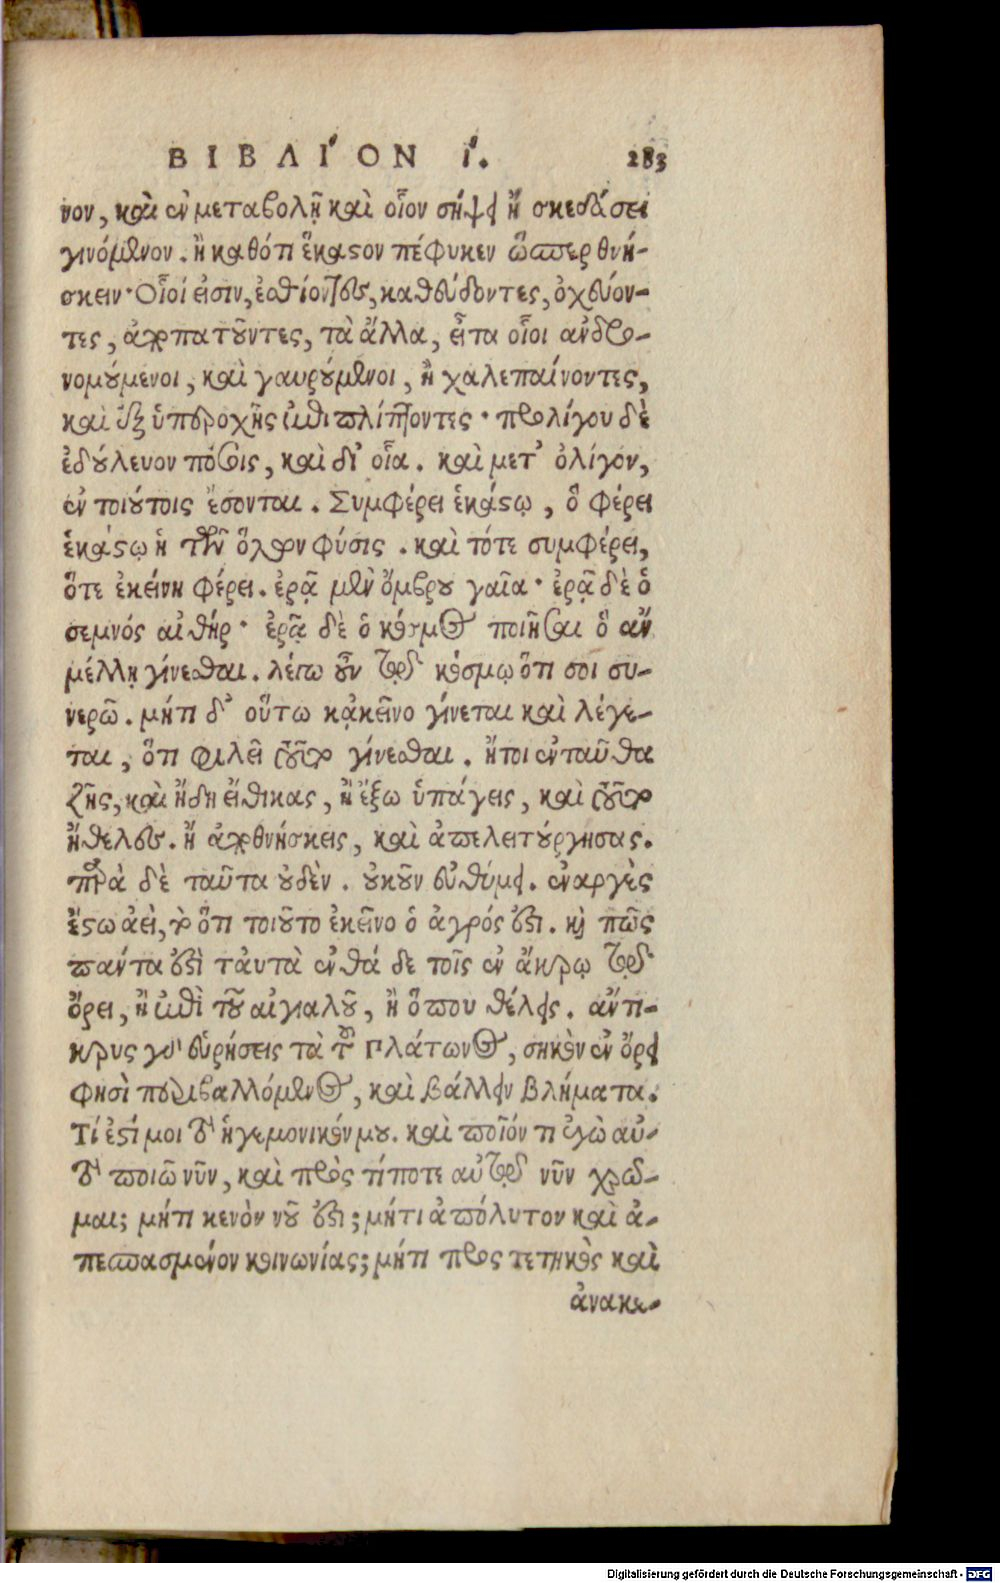 ΒΙΒΛΙ´ΟΝ ί. 283
νον, καὶ ἐν μεταβολῇ καὶ οἷον σήψει ἢ σκεδάσει
γινόμενον. ἢ καθότι ἕκαστον πέφυκεν ὥσπερ θνή-
σκειν· Οἷοί εἰσιν, ἐσθίοντες, καθεύδοντες, ὀχεύον-
τες, ἀποπατοῦντες, τὰ ἄλλα, εἶτα οἷοι ἀνδρο-
νομούμενοι, καὶ γαυρούμενοι, ἢ χαλεπαίνοντες,
καὶ ἐξ ὑπεροχῆς ἐπιπλήττοντες· πρὸ ὀλίγου δὲ
ἐδούλευον πόσοις, καὶ δι' οἷα. καὶ μετ' ὀλίγον,
ἐν τοιούτοις ἔσονται. Συμφέρει ἑκάστῳ, ὃ φέρει
ἑκάστῳ ἡ τῶν ὅλων φύσις. καὶ τότε συμφέρει,
ὅτε ἐκείνη φέρει. ἐρᾷ μὲν ὄμβρου γαῖα· ἐρᾷ δὲ ὁ
σεμνός αἰθήρ· ἐρᾷ δὲ ὁ κόσμος ποιῆσαι ὃ ἂν
μέλλῃ γίνεσθαι. λέγω οὖν τῷ κόσμῳ ὅτι σοι συ-
νερῶ. μήτι δ' οὕτω κἀκεῖνο γίνεται καὶ λέγε-
ται, ὅτι φιλεῖ τοῦτο γίνεσθαι. ἤτοι ἐνταῦθα
ζῇς, καὶ ἤδη εἴθικας, ἢ ἔξω ὑπάγεις, καὶ τοῦτο
ἤθελες. ἢ ἀποθνήσκεις, καὶ ἀπελειτούργησας.
παρὰ δὲ ταῦτα οὐδὲν. οὐκοῦν εὐθύμει. ἐναργὲς
ἔστω ἀεὶ, τὸ ὅτι τοιοῦτο ἐκεῖνο ὁ ἀγρός ἐστι. καὶ πῶς
πάντα ἐστὶ ταὐτὰ ἐνθά δε τοῖς ἐν ἄκρῳ τῷ
ὄρει, ἢ ἐπὶ τοῦ αἰγιαλοῦ, ἢ ὅπου θέλεις. ἄντι-
κρυς γὰρ εὑρήσεις τὰ τοῦ Πλάτωνος, σηκὸν ἐν ὄρει
φησὶ περιβαλλόμενος, καὶ βάλλειν βλήματα.
Τί ἐστί μοι τὸ ἡγεμονικόν μου. καὶ ποῖόν τι ἐγὼ αὐ-
τὸ ποιῶ νῦν, καὶ πρὸς τίποτε αὐτῷ νῦν χρῶ-
μαι; μήτι κενὸν νοῦ ἐστι; μήτι ἀπόλυτον καὶ ἀ-
πεσπασμένον κοινωνίας; μήτι προστετηκὸς καὶ
ἀνακε-
Digitalisierung gefördert durch die Deutsche Forschungsgemeinschaft - DFG